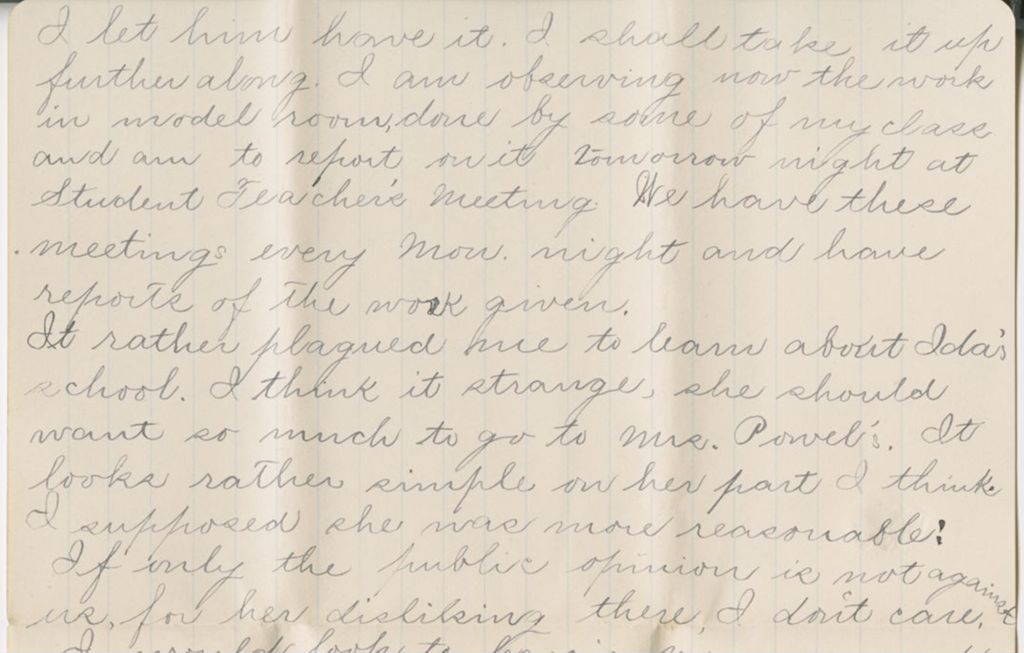 I let him have it. I shall take it up
further along. I am observing now the work
in model room, done by some of my class
and am to report on it tomorrow night at
Student Teacher's Meeting. We have these
meetings every Mon. night and have
reports of the work given.
It rather plagued me to learn about Ida's
school. I think it strange, she should
want so much to go to Mrs. Powel's. It
looks rather simple on her part I think.
I supposed she was more reasonable!
If only the public opinion is not against
us, for her disliking there, I don't care.
I would look to